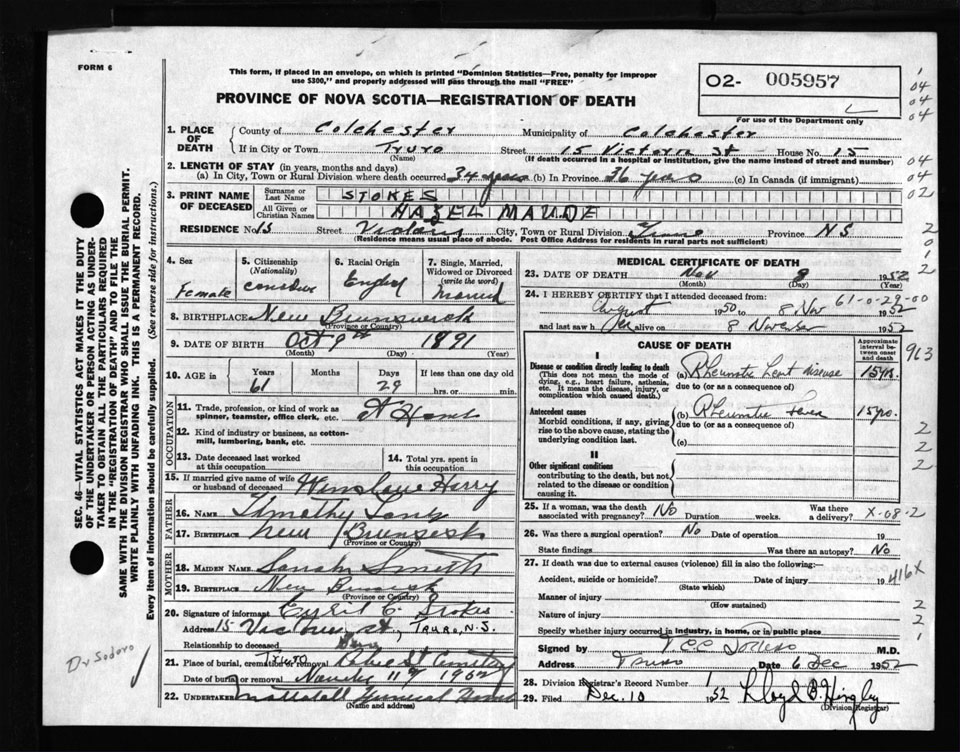 FORM 6
This form, if placed in an envelope, on which is printed "Dominion Statistics—Free, penalty for improper
use $300," and properly addressed will pass through the mail "FREE"
PROVINCE OF NOVA SCOTIA—REGISTRATION OF DEATH
02- 005957
For use of the Department only
1. PLACE OF DEATH
County of Colchester Municipality of Colchester
If in City or Town Truro Street 15 Victoria St House No. 15
(Name) (If death occurred in a hospital or institution, give the name instead of street and number)
2. LENGTH OF STAY (in years, months and days)
(a) In City, Town or Rural Division where death occurred 34 years (b) In Province 36 years (c) In Canada (if immigrant)
3. PRINT NAME OF DECEASED
Surname or Last Name STOKES
All Given or Christian Names HAZEL MAUDE
RESIDENCE No. 15 Street Victoria City, Town or Rural Division Truro Province NS
(Residence means usual place of abode. Post Office Address for residents in rural parts not sufficient)
4. Sex
Female
5. Citizenship
(Nationality)
6. Racial Origin
English
7. Single, Married, Widowed or Divorced
(write the word)
Married
8. BIRTHPLACE New Brunswick
(Province or Country)
9. DATE OF BIRTH Oct 9th 1891
(Month) (Day) (Year)
10. AGE Years Months Days If less than one day old
61 29 hrs. or min.
OCCUPATION
11. Trade, profession, or kind of work as
spinner, teamster, office clerk, etc. At Home
12. Kind of industry or business, as cotton-
mill, lumbering, bank, etc.
13. Date deceased last worked
at this occupation
14. Total yrs. spent in
this occupation
15. If married give name of wife
or husband of deceased Harry
FATHER
16. NAME Timothy Long
17. BIRTHPLACE New Brunswick
(Province or Country)
MOTHER
18. MAIDEN NAME Sarah Smith
19. BIRTHPLACE New Brunswick
(Province or Country)
20. Signature of informant C. Stokes
Address 15 Victoria St, TRURO, N.S.
Relationship to deceased
21. Place of burial, cremation or removal Truro Robie St Cemetery
Date of burial or removal 11th 1952
22. UNDERTAKER Mattatall Funeral Home
(Name and address)
MEDICAL CERTIFICATE OF DEATH
23. DATE OF DEATH Nov 8 1952
(Month) (Day)
24. I HEREBY CERTIFY that I attended deceased from 61-0-29-00
August 1950 to 8 Nov 1952
and last saw h er alive on 8 November 1952
CAUSE OF DEATH
Approximate interval between onset and death
I
Disease or condition directly leading to death
(This does not mean the mode of
dying, e.g., heart failure, asthenia,
etc. It means the disease, injury, or
complication which caused death.)
(a) Rheumatic heart disease 15 yrs.
due to (or as a consequence of)
Antecedent causes
Morbid conditions, if any, giving
rise to the above cause, stating the
underlying condition last.
(b) Rheumatic Fever 15 yrs.
due to (or as a consequence of)
(c)
II
Other significant conditions
contributing to the death, but not
related to the disease or condition
causing it.
25. If a woman, was the death
associated with pregnancy? No Duration weeks. Was there a delivery? X-08-2
26. Was there a surgical operation? No Date of operation 19
State findings Was there an autopsy? No
27. If death was due to external causes (violence) fill in also the following:—
Accident, suicide or homicide? Date of injury 19 416X
(State which)
Manner of injury
(How sustained)
Nature of injury
Specify whether injury occurred in industry, in home, or in public place
Signed by M.D.
Address Truro Date 6 Dec 1952
28. Division Registrar's Record Number 1
29. Filed Dec. 10 1952
(Division Registrar)
SEC. 46—VITAL STATISTICS ACT MAKES IT THE DUTY
OF THE UNDERTAKER OR PERSON ACTING AS UNDER-
TAKER TO OBTAIN ALL THE PARTICULARS REQUIRED
IN THE "REGISTRATION OF DEATH" AND TO FILE THE
SAME WITH THE DIVISION REGISTRAR WHO SHALL ISSUE THE BURIAL PERMIT.
WRITE PLAINLY WITH UNFADING INK. THIS IS A PERMANENT RECORD.
Every item of information should be carefully supplied. (See reverse side for instructions.)
04
04
04
04
04
02
2
0
1
2
963
2
2
2
2
2
1